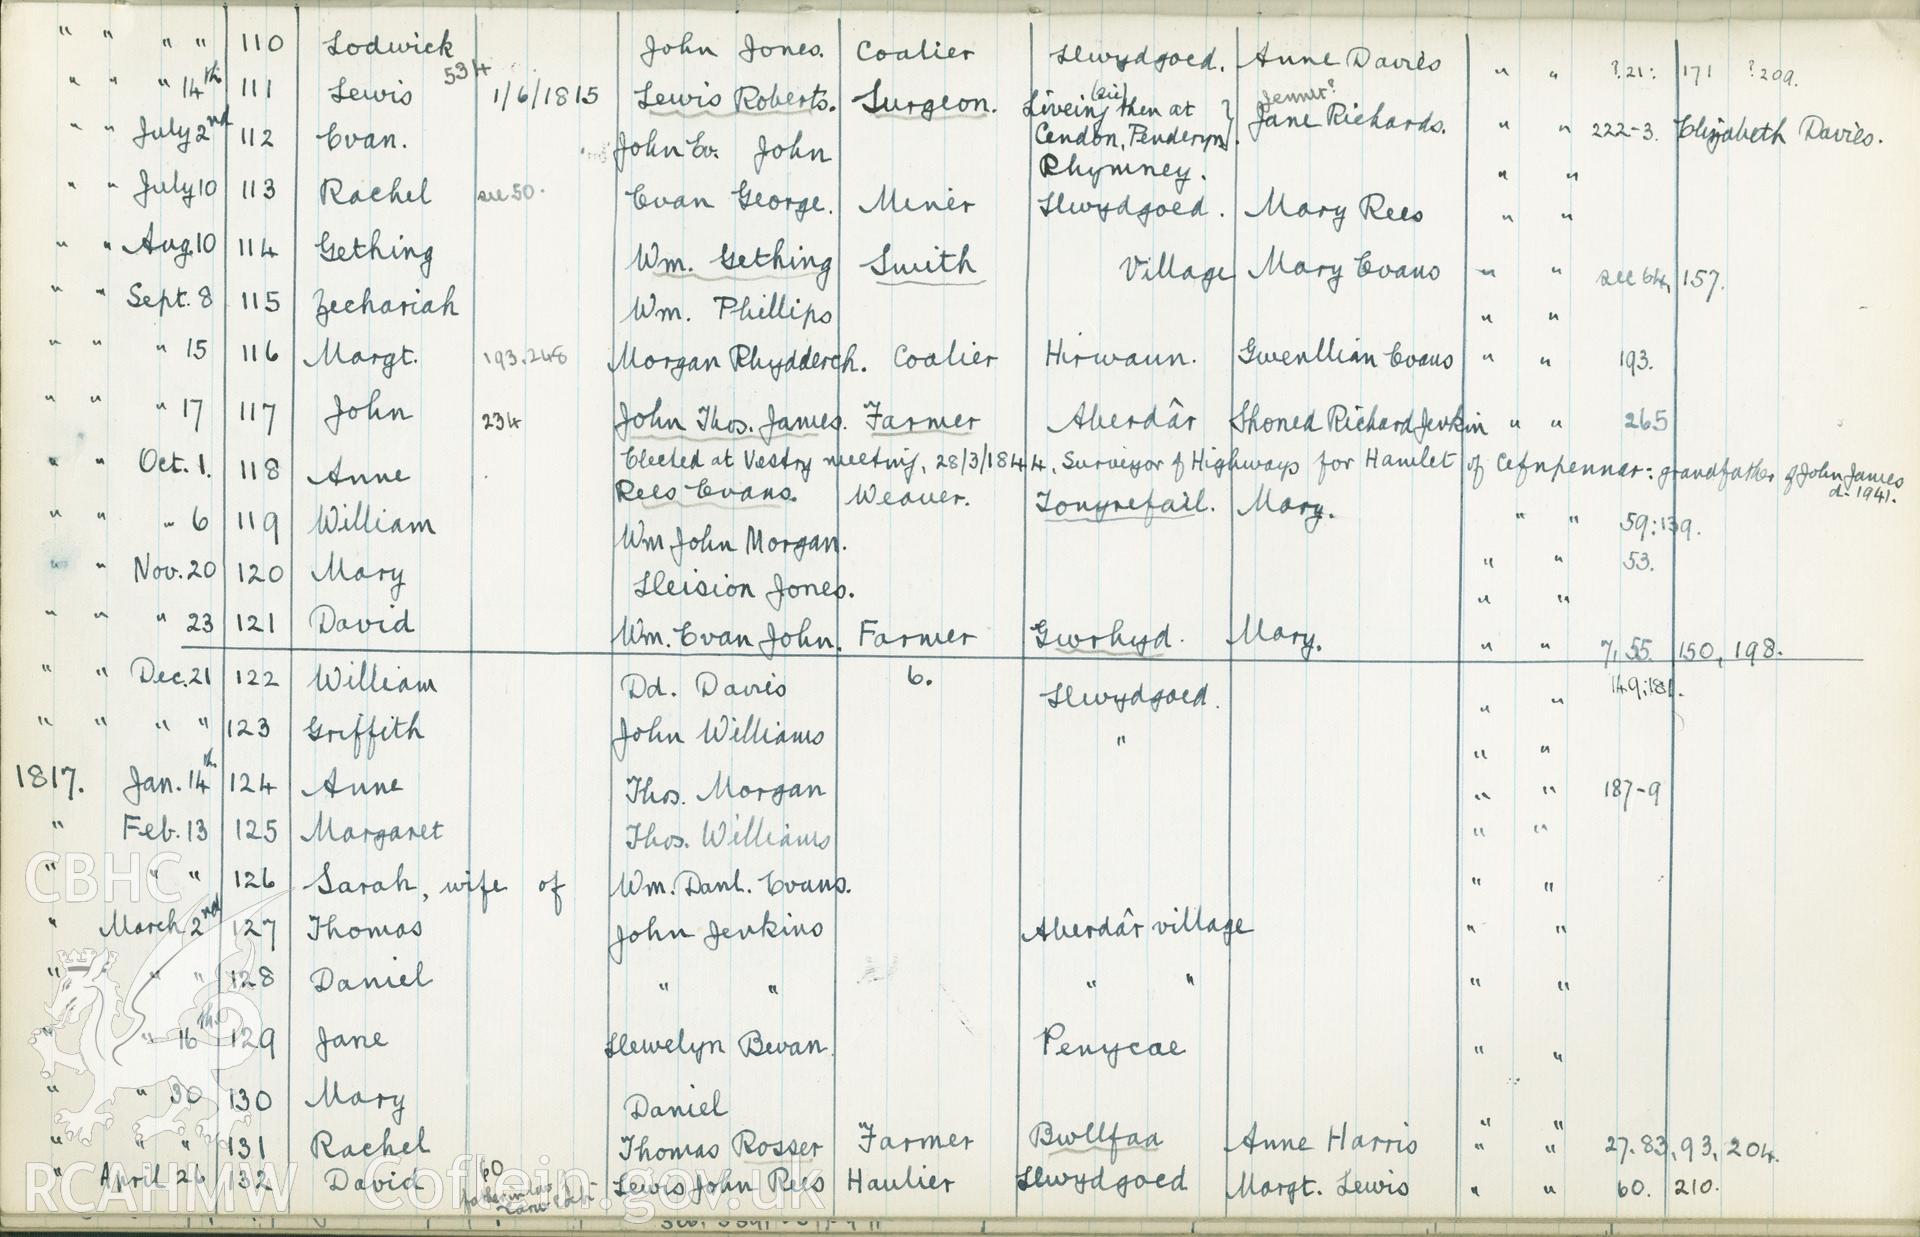 " " " " 110 Lodwick John Jones. Coalier Llwydgoed. Anne Davies " " ?21: 171 ?209.
" " " 14th 111 Lewis 534 1/6/1815 Lewis Roberts. Surgeon. Liveing (sic) then at Cendon, Penderyn}. Jennet? Jane Richards. " " 222-3. Elizabeth Davies.
" " July 2nd 112 Evan. John Ev. John Rhymney. " "
" " July 10 113 Rachel see 50. Evan George. Miner Llwydgoed. Mary Rees " "
" " Aug. 10 114 Gething Wm. Gething Smith Village Mary Evans " " see 64, 157.
" " Sept. 8 115 Zechariah Wm. Phillips " "
" " " 15 116 Margt. 193.248 Morgan Rhydderch. Coalier Hirwaun. Gwenllian Evans " " 193.
" " " 17 117 John 234 John Thos. James. Farmer Aberdâr Shoned Richard Jenkin " " 265
Elected at Vestry meeting, 28/3/1844, Surveyor of Highways for Hamlet of Cefnpennar: grandfather of John James d. 1941.
" " Oct. 1. 118 Anne Rees Evans. Weaver. Tonyrefail. Mary. " " 59:139.
" " " 6 119 William Wm John Morgan. " " 53.
" " Nov. 20 120 Mary Lleision Jones. " "
" " " 23 121 David Wm. Evan John. Farmer Gwrhyd. Mary. " " 7, 55. 150, 198.
" " Dec. 21 122 William Dd. Davis 6. Llwydgoed. " " 149:181.
" " " " 123 Griffith John Williams " " "
1817. Jan. 14th. 124 Anne Thos. Morgan " " 187-9
" Feb. 13 125 Margaret Thos. Williams " "
" " " 126 Sarah, wife of Wm. Danl. Evans. " "
" March 2nd 127 Thomas John Jenkins Aberdâr village " "
" " " 128 Daniel " " " " " "
" " 16th. 129 Jane Llewelyn Bevan. Penycae " "
" " 30 130 Mary Daniel " "
" " " 131 Rachel Thomas Rosser Farmer Bwllfaa Anne Harris " " 27. 83, 93, 204.
" April 26 132 David 60 Lewis John Rees Haulier Llwydgoed Margt. Lewis " " 60. 210.
father in law
CBHC
RCAHMW Coflein.gov.uk